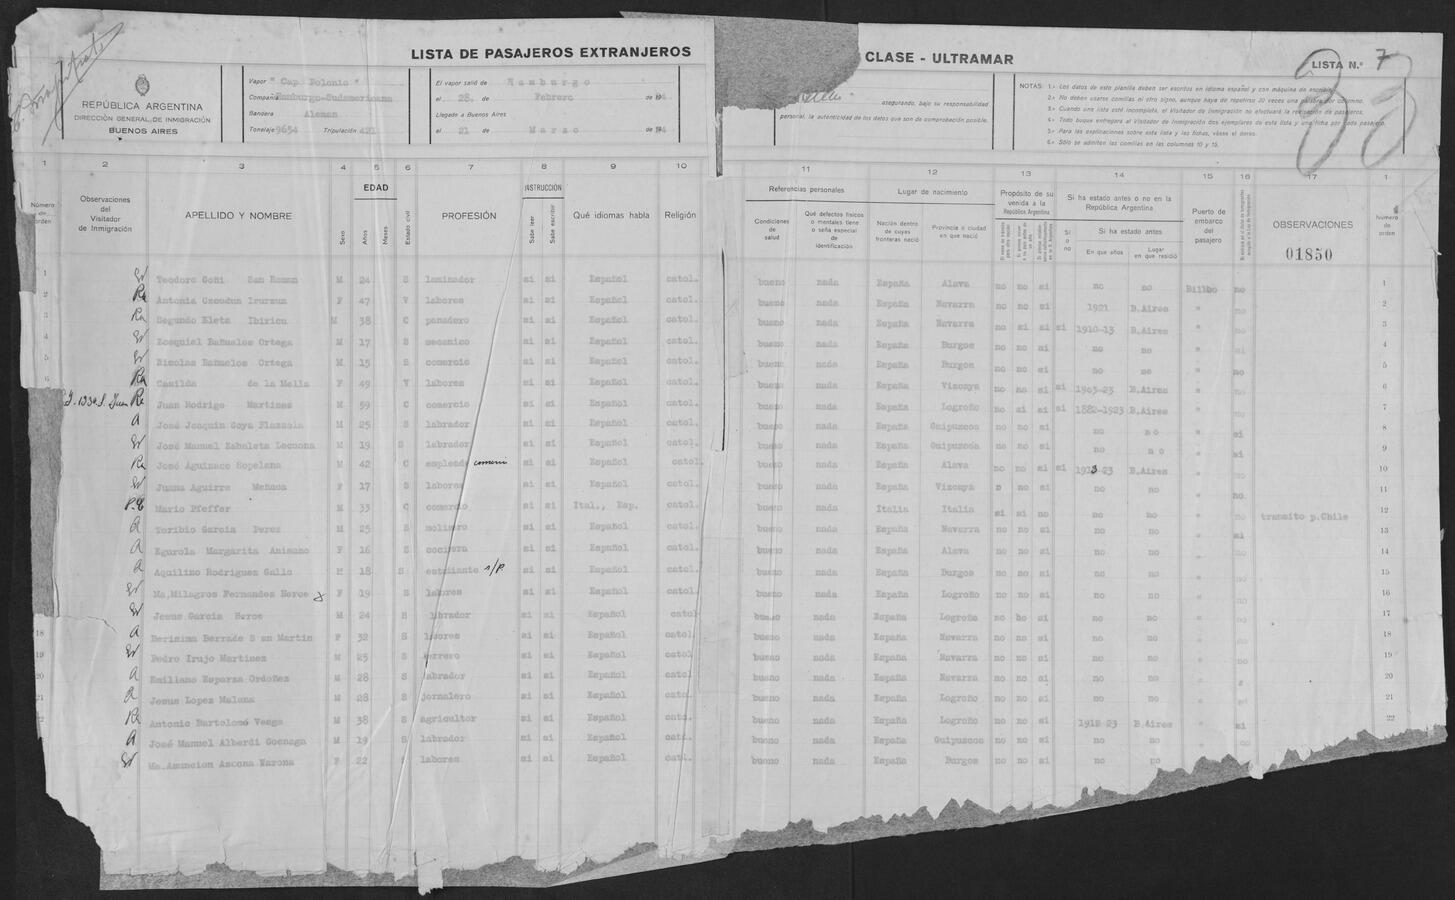 LISTA DE PASAJEROS EXTRANJEROS
CLASE - ULTRAMAR
LISTA N.° 7
REPÚBLICA ARGENTINA
DIRECCIÓN GENERAL DE INMIGRACIÓN
BUENOS AIRES
Vapor " Cap Polonio "
Compañía Hamburgo-Sudamericana
Bandera Aleman
Tonelaje 9654 Tripulación 421
El vapor salió de Hamburgo
el 28. de Febrero de 19
Llegado a Buenos Aires
el 21 de Marzo de 19
asegurando, bajo su responsabilidad
personal, la autenticidad de los datos que son de comprobación posible.
NOTAS: 1.a Los datos de esta planilla deben ser escritos en idioma español y con máquina de escribir.
2.a No deben usarse comillas ni otro signo, aunque haya de repetirse 30 veces una palabra por columna.
3.a Cuando una lista esté incompleta, el Visitador de Inmigración no efectuará la revisación de pasajeros.
4.a Todo buque entregará al Visitador de Inmigración dos ejemplares de esta lista y una ficha por cada pasajero.
5.a Para las explicaciones sobre esta lista y las fichas, véase el dorso.
6.a Sólo se admiten las comillas en las columnas 10 y 15.
1 2 3 4 5 6 7 8 9 10 11 12 13 14 15 16 17 1
Número de orden
Observaciones del Visitador de Inmigración
APELLIDO Y NOMBRE
Sexo
EDAD
Años Meses
Estado civil
PROFESIÓN
INSTRUCCIÓN
Sabe leer Sabe escribir
Qué idiomas habla
Religión
Referencias personales
Condiciones de salud
Qué defectos físicos o mentales tiene o seña especial de identificación
Lugar de nacimiento
Nación dentro de cuyas fronteras nació
Provincia o ciudad en que nació
Propósito de su venida a la República Argentina
Si ha estado antes o no en la República Argentina
Si o no
Si ha estado antes
En que años
Lugar en que residió
Puerto de embarco del pasajero
OBSERVACIONES
01850
Número de orden
1 Teodoro Goñi San Roman M 24 S laminador si si Español catol. bueno nada España Alava no no si no no Bilbao no 1
2 Re Antonia Gscudun Irurzun F 47 V labores si si Español catol. bueno nada España Navarra no no si 1921 B.Aires " no 2
3 Re Segundo Eleta Ibirica M 38 C panadero si si Español catol. bueno nada España Navarra no si si si 1910-13 B.Aires " no 3
4 Ezequiel Bañuelos Ortega M 17 S mecanico si si Español catol. bueno nada España Burgos no no si no no " 4
5 Nicolas Bañuelos Ortega M 15 S comercio si si Español catol. bueno nada España Burgos no no si no no " no 5
6 Re Casilda de la Mella F 49 V labores si si Español catol. bueno nada España Vizcaya no no si si 1903-23 B.Aires " no 6
Re Juan Rodrigo Martinez M 59 C comercio si si Español catol. bueno nada España Logroño no si si si 1882-1923 B.Aires " no 7
A José Joaquin Goya Plazaola M 25 S labrador si si Español catol. bueno nada España Guipuzcoa no no si no no " si 8
José Manuel Zabaleta Lecuona M 19 S labrador si si Español catol. bueno nada España Guipuzcoa no no si no no " si 9
Re José Aguinaco Sopelana M 42 C empleado si si Español catol. bueno nada España Alava no no si si 1913-23 B.Aires " no 10
Juana Aguirre Meñaca F 17 S labores si si Español catol. bueno nada España Vizcaya no si no no " no 11
Mario Pfeffer M 33 C comercio si si Ital., Esp. catol. bueno nada Italia Italia si si no no no " no transito p.Chile 12
A Toribio Garcia Perez M 25 S molinero si si Español catol. bueno nada España Navarra no no si no no " si 13
A Egurola Margarita Anizano F 16 S cocinera si si Español catol. bueno nada España Alava no no si no no " no 14
A Aquilino Rodriguez Gallo M 18 S estudiante s/p. si si Español catol. bueno nada España Burgos no no si no no " no 15
Ma.Milagros Fernandez Heroe F 19 S labores si si Español catol. bueno nada España Logroño no no si no no " no 16
Jesus Garcia Heroe M 24 S labrador si si Español catol bueno nada España Logroño no no si no no " no 17
18 A Berisima Berrade San Martin F 32 S labores si si Español catol. bueno nada España Navarra no no si no no " no 18
19 Pedro Irujo Martinez M 25 S herrero si si Español catol bueno nada España Navarra no no si no no " no 19
20 A Emiliano Esparza Ordoñez M 28 S labrador si si Español catol. bueno nada España Navarra no no si no no " 20
21 A Jesus Lopez Maluna M 28 S jornalero si si Español cato. bueno nada España Logroño no no si no no " no 21
22 Re Antonio Bartolomé Vesga M 38 S agricultor si si Español cato. bueno nada España Logroño no no si 1912-23 B.Aires " si 22
A José Manuel Alberdi Goenaga M 19 S labrador si si Español cat. bueno nada España Guipuzcoa no no si no no
Ma.Asuncion Ascona Varona F 22 labores si si Español catol. bueno nada España Burgos no no si no no